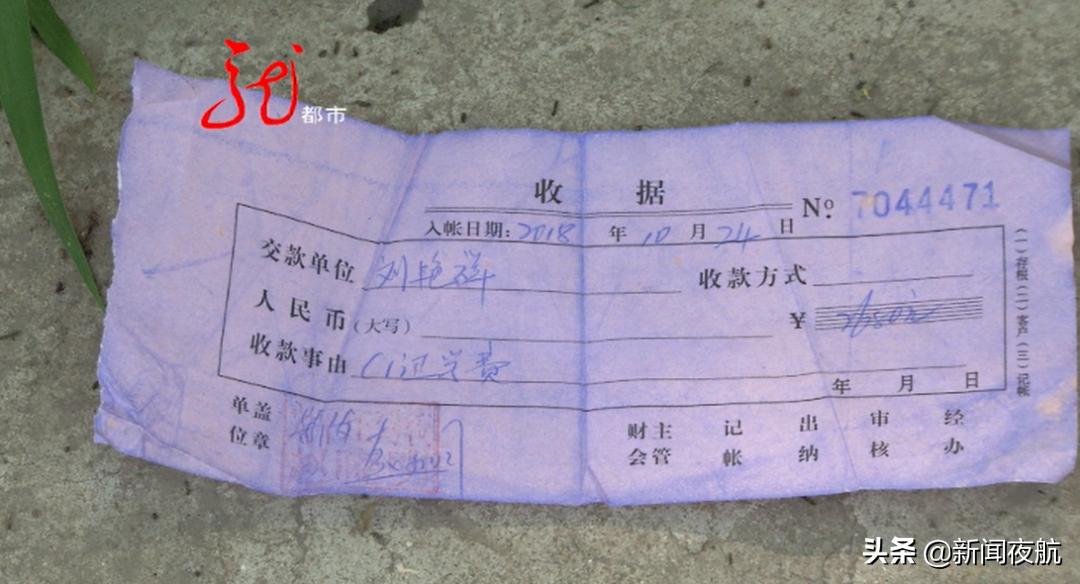 龙
都市
收 据
No: 7044471
入帐日期: 2018 年 10 月 24 日
交款单位 刘艳祥 收款方式
人民币(大写) ¥ 2650元
收款事由 C1证学费
年 月 日
单位盖章
财会主管 记帐 出纳 审核 经办
(一)存根(二)客户(三)记帐
头条 @新闻夜航